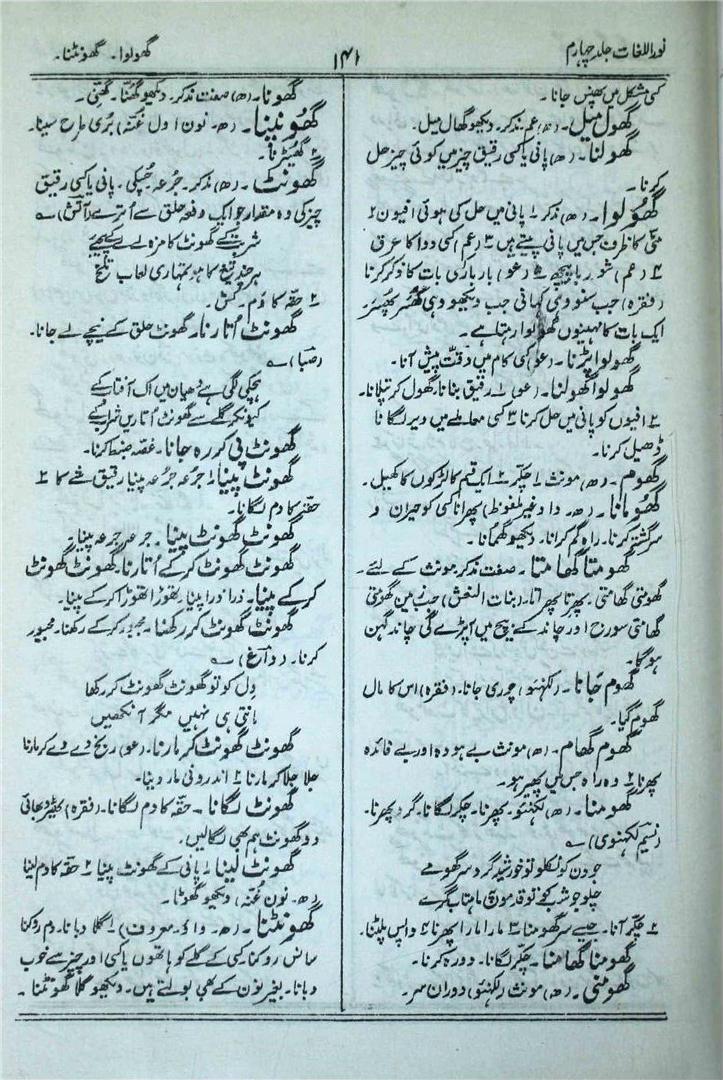 نوراللغات جلد چہارم
۱۴۱
گھولوا۔ گھونٹنا۔
کسی مشکل میں پھنس جانا۔
گھول میل۔ (ھ) عم۔ مذکر۔ دیکھو گھال میل۔
گھولنا۔ (ھ) پانی یا کسی رقیق چیز میں کوئی چیز حل
کرنا۔
گھولوا۔ (ھ) مذکر ۱ پانی میں حل کی ہوئی افیون ۲
مٹی کا ظرف جس میں پانی پیتے ہیں ۳ (عم) کسی دوا کا عرق
۴ (عم) شوربا۔ پیچھ ۵ (عو) بار بار کسی بات کا ذکر کرنا
(فقرہ) جب سنو وہی کہانی جب دیکھو وہی گھسر پھسر
ایک بات کا مہینوں گھولوا رہتا ہے۔
گھولوا پڑنا۔ (عو) کسی کام میں دقّت پیش آنا۔
گھولوا گھولنا۔ (عو) ۱ رقیق بنانا۔ گھول کر پتلانا۔
۲ افیون کو پانی میں حل کرنا ۳ کسی معاملے میں دیر لگانا
ڈھیل کرنا۔
گھوم۔ (ھ) مونث ۱ چکّر ۲ ایک قسم کا لڑکوں کا کھیل۔
گھومانا۔ (ھ۔ واو غیر ملفوظ) پھرانا کسی کو حیران و
سرگشتہ کرنا۔ راہ گم کرانا۔ دیکھو گھمانا۔
گھومتا گھامتا۔ صفت مذکر۔ مونث کے لئے۔
گھومتی گھامتی۔ پھرتا پھراتا۔ (بنات النعش) جب زمین گھومتی
گھامتی سورج اور چاند کے بیچ میں آپڑے گی چاند گہن
ہوگا۔
گھوم جانا۔ (لکھنؤ) چوری جانا۔ (فقرہ) اس کا مال
گھوم گیا۔
گھوم گھام۔ (ھ) مونث بے ہودہ اور بے فائدہ
پھرنا ۲ وہ راہ جس میں پھیر ہو۔
گھومنا۔ (ھ) لکھنؤ۔ پھرنا۔ چکّر لگانا۔ گرد پھرنا۔
(نسیم لکھنوی) ؎
جو دن کو نکلو تو خورشید گرد سر گھومے
چلو جو شب کو تو قدموں پہ ماہتاب گرے
۲ چکّر آنا۔ جیسے سر گھومنا ۳ مارا مارا پھرنا ۴ واپس پلٹنا۔
گھومنا گھامنا۔ چکّر لگانا۔ دورہ کرنا۔
گھومنی۔ (ھ) مونث (لکھنؤ) دوران سر۔
گھونا۔ (ھ) صفت مذکر۔ دیکھو گھنّا۔ گھنّی۔
گھونپنا۔ (ھ۔ نون اول غنّہ) بری طرح سینا۔
۲ گھسیڑنا۔
گھونٹ۔ (ھ) مذکر۔ جرعہ۔ چسکی۔ پانی یا کسی رقیق
چیز کی وہ مقدار جو ایک دفعہ حلق سے اُترے (آتش) ؎
شربت کے گھونٹ کا مزہ لے لے کے پیجئے
ہر چند تیغ کا ہو تمہاری لعاب تلخ
۲ حقّہ کا دَم۔ کش۔
گھونٹ اُتارنا۔ گھونٹ حلق کے نیچے لے جانا۔
(صبا) ؎
ہچکی لگی ہے دھیان میں اک آفتاب کے
کیونکر گلے سے گھونٹ اُتاریں شراب کے
گھونٹ پی کر رہ جانا۔ غصہ ضبط کرنا۔
گھونٹ پینا ۱ جرعہ جرعہ پینا رقیق شے کا ۲
حقّہ کا دم لگانا۔
گھونٹ گھونٹ پینا۔ جرعہ جرعہ پینا۔
گھونٹ گھونٹ کر کے اُتارنا۔ گھونٹ گھونٹ
کر کے پینا۔ ذرا ذرا پینا۔ تھوڑا تھوڑا کر کے پینا۔
گھونٹ گھونٹ کر رکھنا۔ مجبور کر کے رکھنا۔ مجبور
کرنا۔ (داغ) ؎
دل کو تو گھونٹ گھونٹ کر رکھا
مانتی ہی نہیں مگر آنکھیں
گھونٹ گھونٹ کر مارنا۔ (عو) رنج دے دے کر مارنا
جلا جلا کر مارنا ۲ اندرونی مار دینا۔
گھونٹ لگانا۔ حقّہ کا دم لگانا۔ (فقرہ)
دو گھونٹ ہم بھی لگالیں۔
گھونٹ لینا ۱ پانی کے گھونٹ پینا ۲ حقّہ کا دم لینا
(ھ۔ نون غنّہ) دیکھو گھوٹا۔
گھونٹنا۔ (ھ۔ واؤ معروف) ۱ گلا دبانا۔ دم روکنا
سانس روکنا کسی کے گلے کو ہاتھوں یا کسی اور چیز سے خوب
دبانا۔ بغیر نون کے بھی بولتے ہیں۔ دیکھو گلا گھونٹنا۔